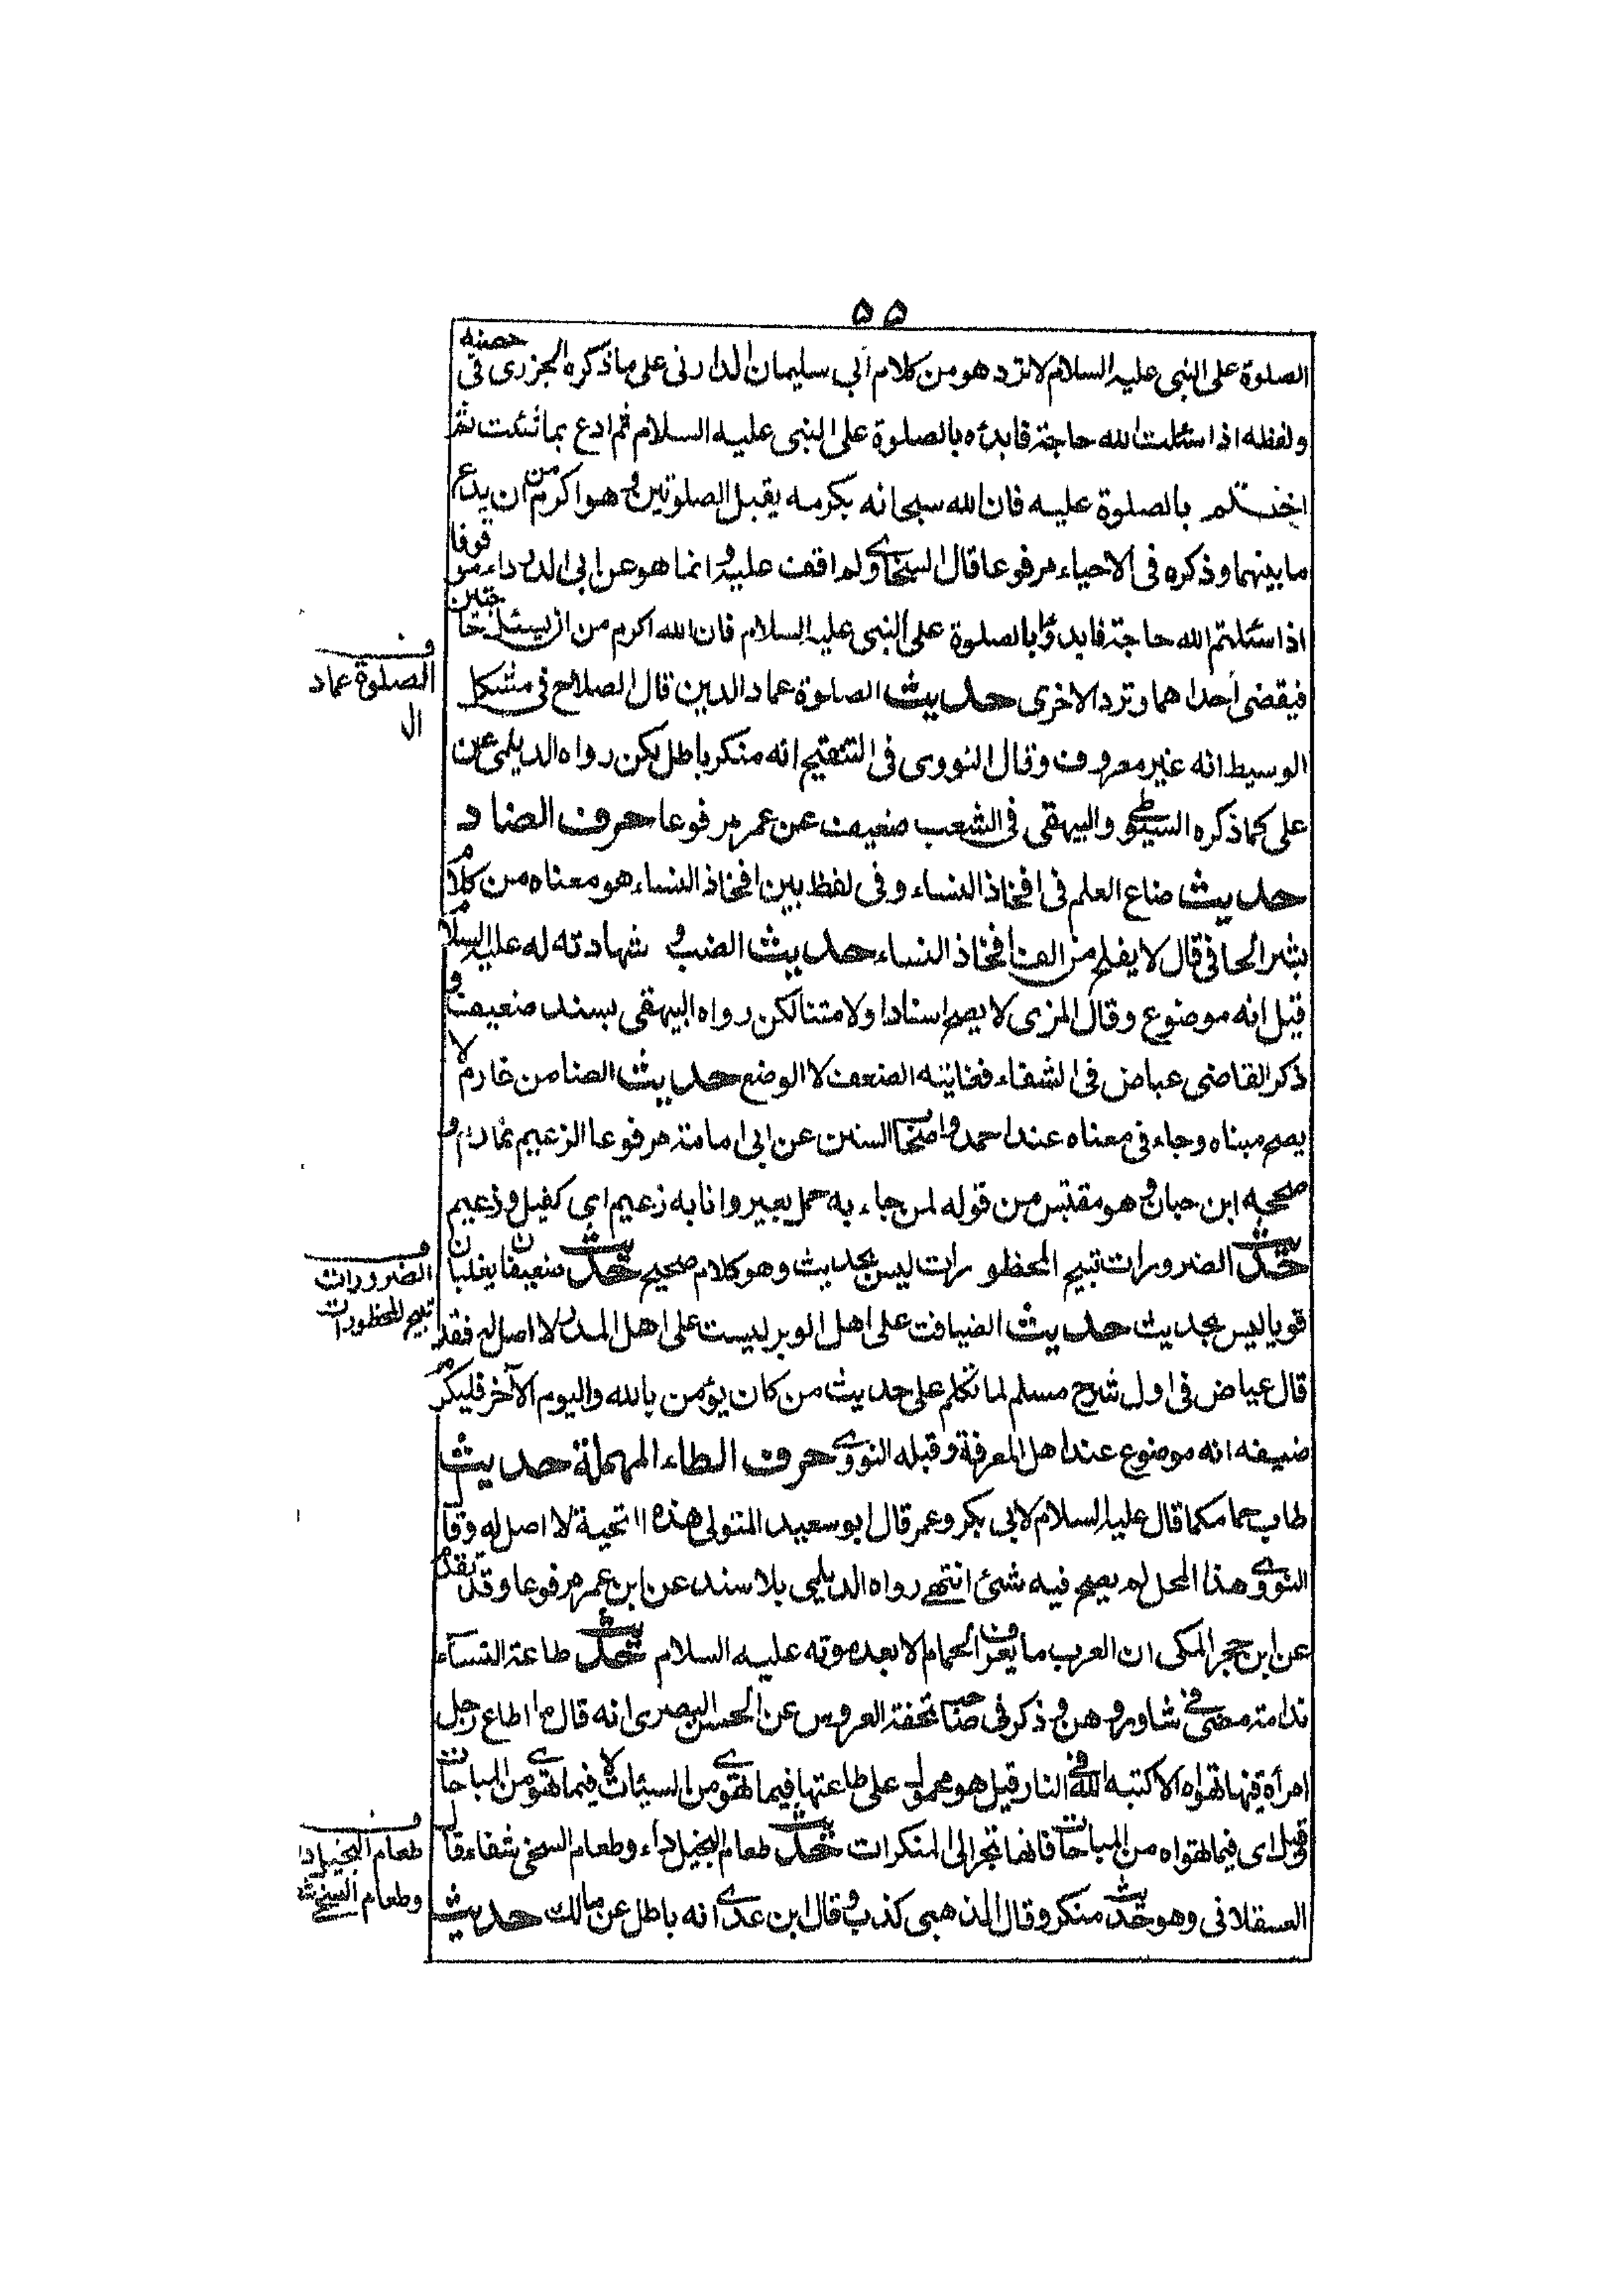 ۵۵
الصلوة على النبى عليه السلام لا ترد هو من كلام ابى سليمان الدارنى على ما ذكره الجزرى فى حصنه
ولفظه اذا سئلت الله حاجة فابدئه بالصلوة على النبى عليه السلام ثم ادع بما شئت ثم
اختتم بالصلوة عليه فان الله سبحانه بكرمه يقبل الصلوتين وهو اكرم من ان يدع
ما بينهما وذكره فى الاحياء مرفوعا قال السخاوى ولم اقف عليه وانما هو عن ابى الدرداء موقوفا
اذا سئلتم الله حاجة فابدؤا بالصلوة على النبى عليه السلام فان الله اكرم من ان يسئل حاجتين
فيقضى احداهما وترد الاخرى حديث الصلوة عماد الدين قال الصلاح فى مشكل
الوسيط انه غير معروف وقال النووى فى التنقيح انه منكر باطل لكن رواه الديلمى عن
على كما ذكره السيوطى والبيهقى فى الشعب ضعيف عن عمر مرفوعا حرف الضاد
حديث ضاع العلم فى افخاذ النساء وفى لفظ بين افخاذ النساء هو معناه من كلام
بشر الحافى قال لا يفلح من الف افخاذ النساء حديث الضب و شهادته له عليه السلام
قيل انه موضوع وقال المزى لا يصح اسنادا ولا متنا لكن رواه البيهقى بسند ضعيف و
ذكر القاضى عياض فى الشفاء فغايته الضعف لا الوضع حديث الضامن غارم لا
يصح مبناه وجاء فى معناه عند احمد واصحاب السنن عن ابى امامة مرفوعا الزعيم غارم و
صححه ابن حبان وهو مقتبس من قوله لمن جاء به حمل بعير وانا به زعيم اى كفيل وزعيم
حديث الضرورات تبيح المحظورات ليس بحديث وهو كلام صحيح حديث ضعيفان يغلبان
قويا ليس بحديث حديث الضيافت على اهل الوبر ليست على اهل المدر لا اصل له فقد
قال عياض فى اول شرح مسلم لما تكلم على حديث من كان يؤمن بالله واليوم الآخر فليكرم
ضيفه انه موضوع عند اهل المعرفة وقبله النووى حرف الطاء المهملة حديث
طاب حمامكما قال عليه السلام لابى بكر وعمر قال ابو سعيد المتولى هذه التحية لا اصل له وقال
النووى هذا المحل لم يصح فيه شئ انتهى رواه الديلمى بلا سند عن ابن عمر مرفوعا وقد تقدم
عن ابن حجر المكى ان العرب ما يعرف الحمام الا بعد موته عليه السلام حديث طاعة النساء
ندامة مضى فى شاوروهن وذكر فى صاحب تحفة العروس عن الحسن البصرى انه قال ما اطاع رجل
امرأة فيها تهواه الا كتبه الله فى النار قيل هو محمول على طاعتها فيما تهوى من السيئات لا فيما تهوى من المباحات
قيل اى فيما تهواه من المباحات فانها تجر الى المنكرات حديث طعام البخيل داء وطعام السخى شفاء قال
العسقلانى وهو حديث منكر وقال الذهبى كذب وقال ابن عدى انه باطل عن مالك حديث
ف
الصلوة عماد
ال
ف
الضرورات
تبيح المحظورات
ف
طعام البخيل دا
وطعام السخى ش